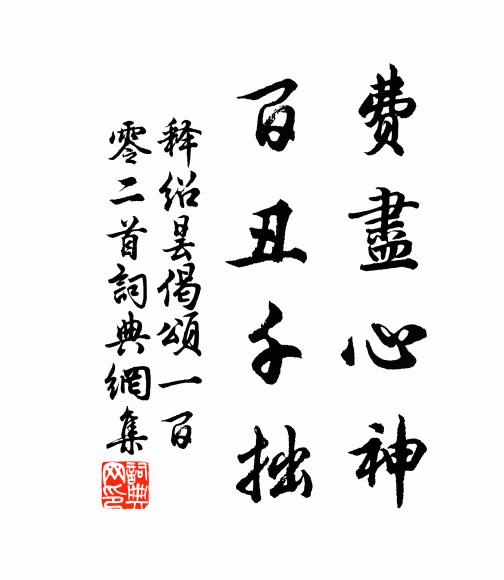 費盡心神
百丑千拙
释绍昙偈頌一百
零二首詞典網集
詞典網印